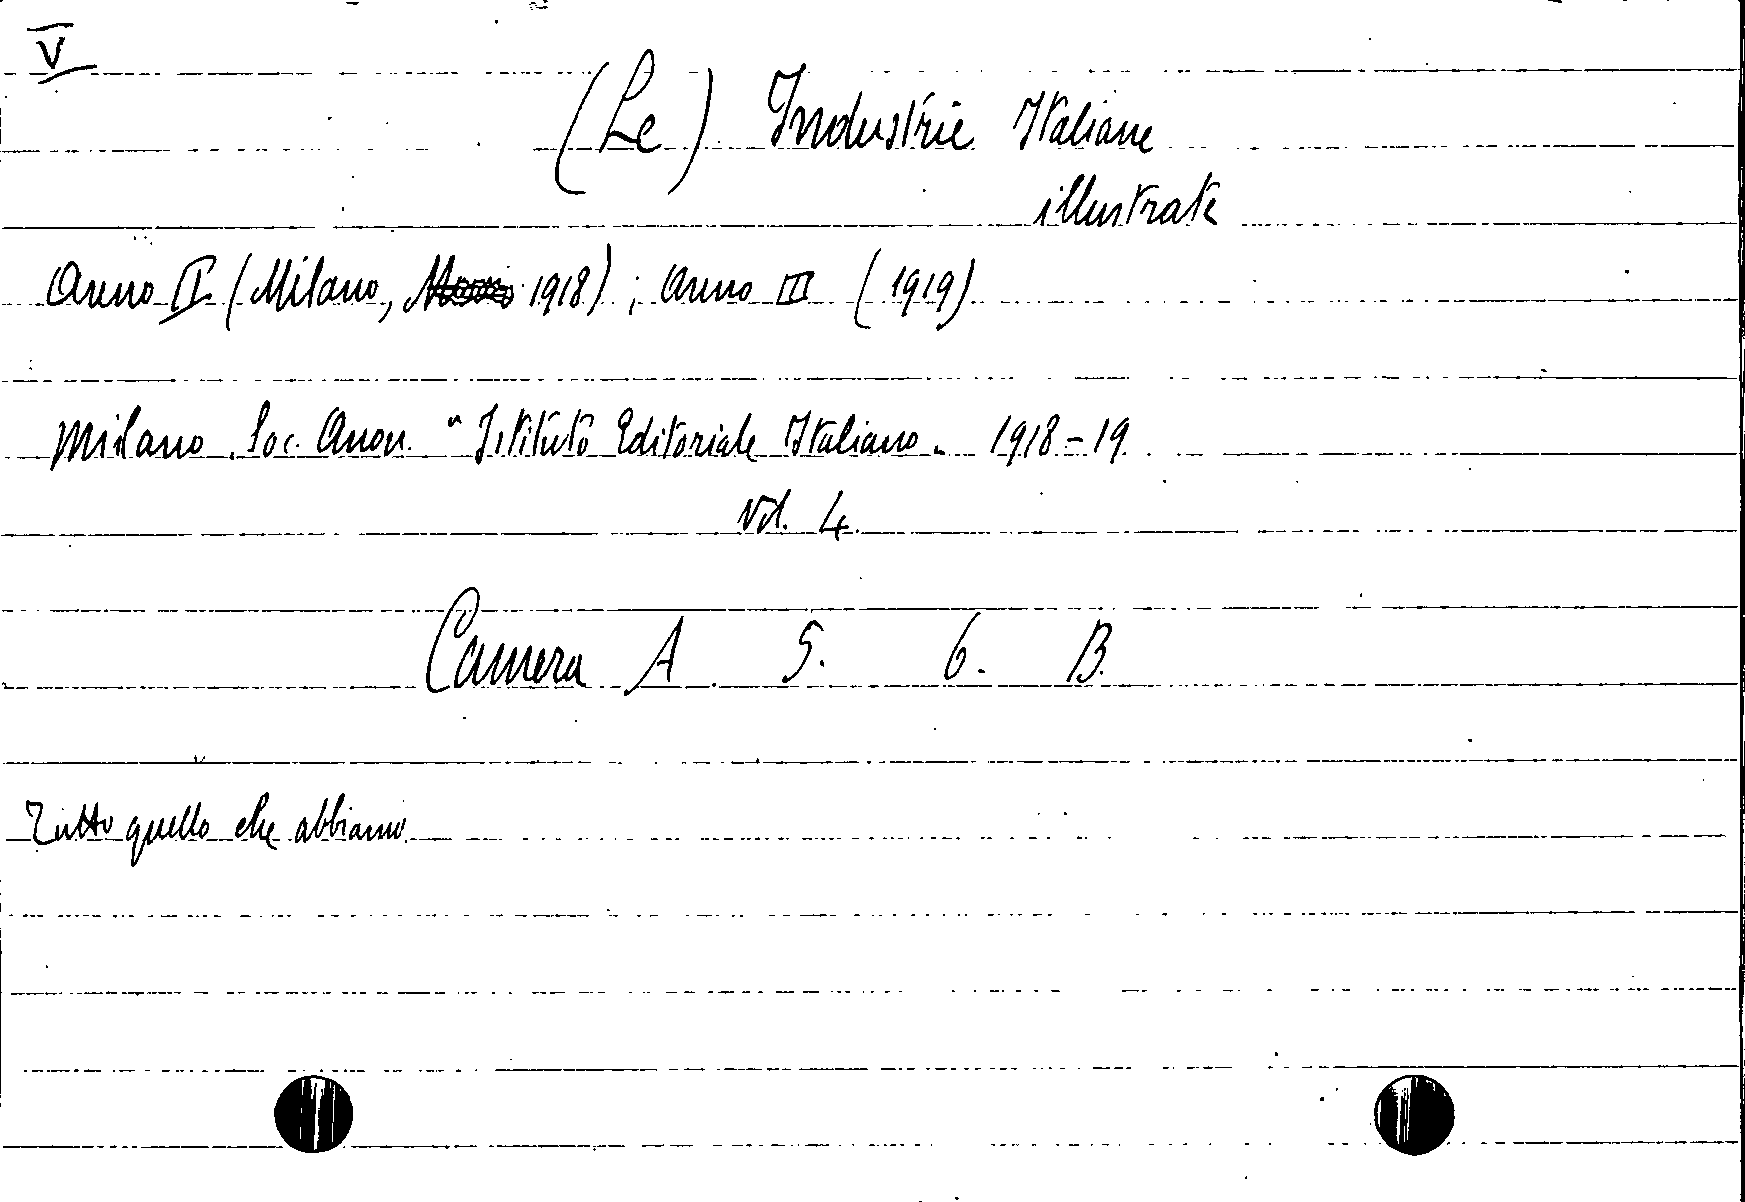 V
(Le) Industrie Italiane
illustrate
Anno II (Milano, 1918); Anno III (1919)
Milano. Soc. Anon. "Istituto Editoriale Italiano" 1918-19.
Vol. 4.
Camera A. 5. 6. B.
Tutto quello che abbiamo.